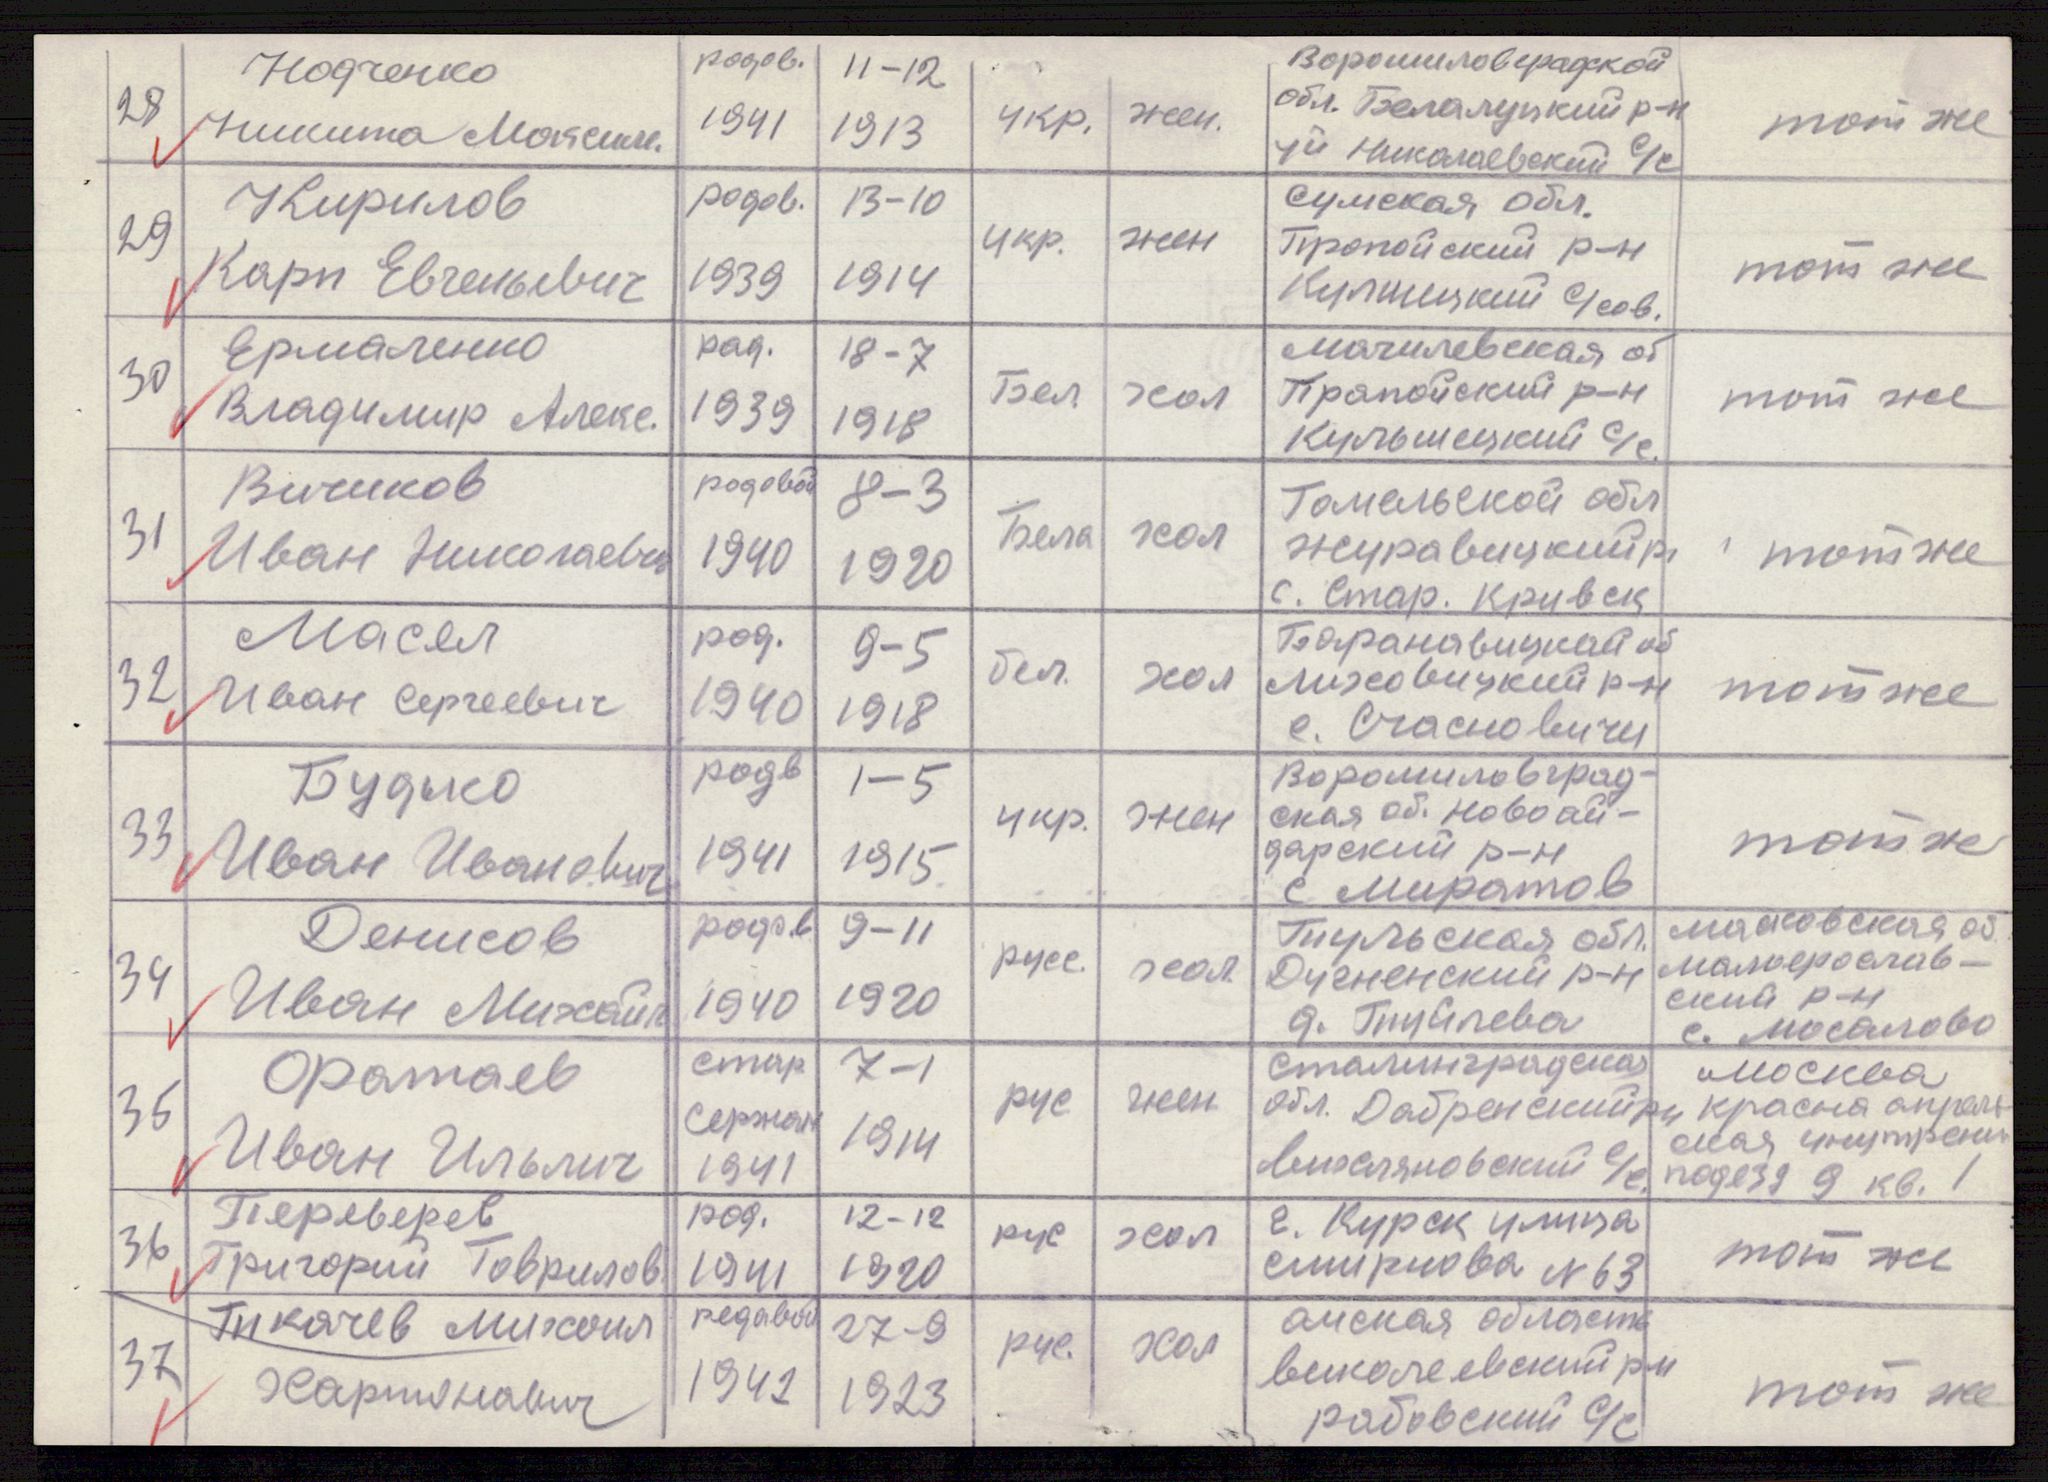 28
Нодченко
Никита Максим.
родов.
1941
11-12
1913
укр.
жен.
Ворошиловградской
обл. Белалуцкий р-н
Николаевский с/с
тот же
29
Кирилов
Карп Евгеньевич
родов.
1939
13-10
1914
укр.
жен
Сумская обл.
Пропойский р-н
Кулшицкий с/сов.
тот же
30
Ермаленко
Владимир Алекс.
ряд.
1939
18-7
1918
Бел.
хол
Магилевская об
Прапойский р-н
Кульшецкий с/с.
тот же
31
Вичиков
Иван Николаевич
родовой
1940
8-3
1920
Бела
хол
Гомельской обл
журавицкий р
с. Стар. Кривск
тот же
32
Масел
Иван Сергеевич
род.
1940
9-5
1918
бел.
хол
Баранавицкай об
Ляховицкий р-н
с. Счасновичи
тот же
33
Будико
Иван Иванович
родв
1941
1-5
1915
укр.
жен
Ворошиловград-
ская об. Новоай-
дарский р-н
с Миратов
тот ж
34
Денисов
Иван Михайл
родов
1940
9-11
1920
русс.
хол.
Тульская обл.
Дугненский р-н
д.
Масковская об
малоерослав-
ский р-н
с. Мосалово
35
Оратаев
Иван Ильич
стар
сержан
1941
7-1
1914
рус
жен
Сталинградская
обл. Дабренский рн
с/с.
Москва
красна
подезд 9 кв. 1
36
Переверев
Григорий Гаврилов.
род.
1941
12-12
1920
рус
хол
г. Курск улица
Смирнова N 63
тот же
37
Ткачев Михаил
Харитонавич
редавой
1942
27-9
1923
рус.
хол
амская область
викалеевский рн
рабовский с/с
тот же